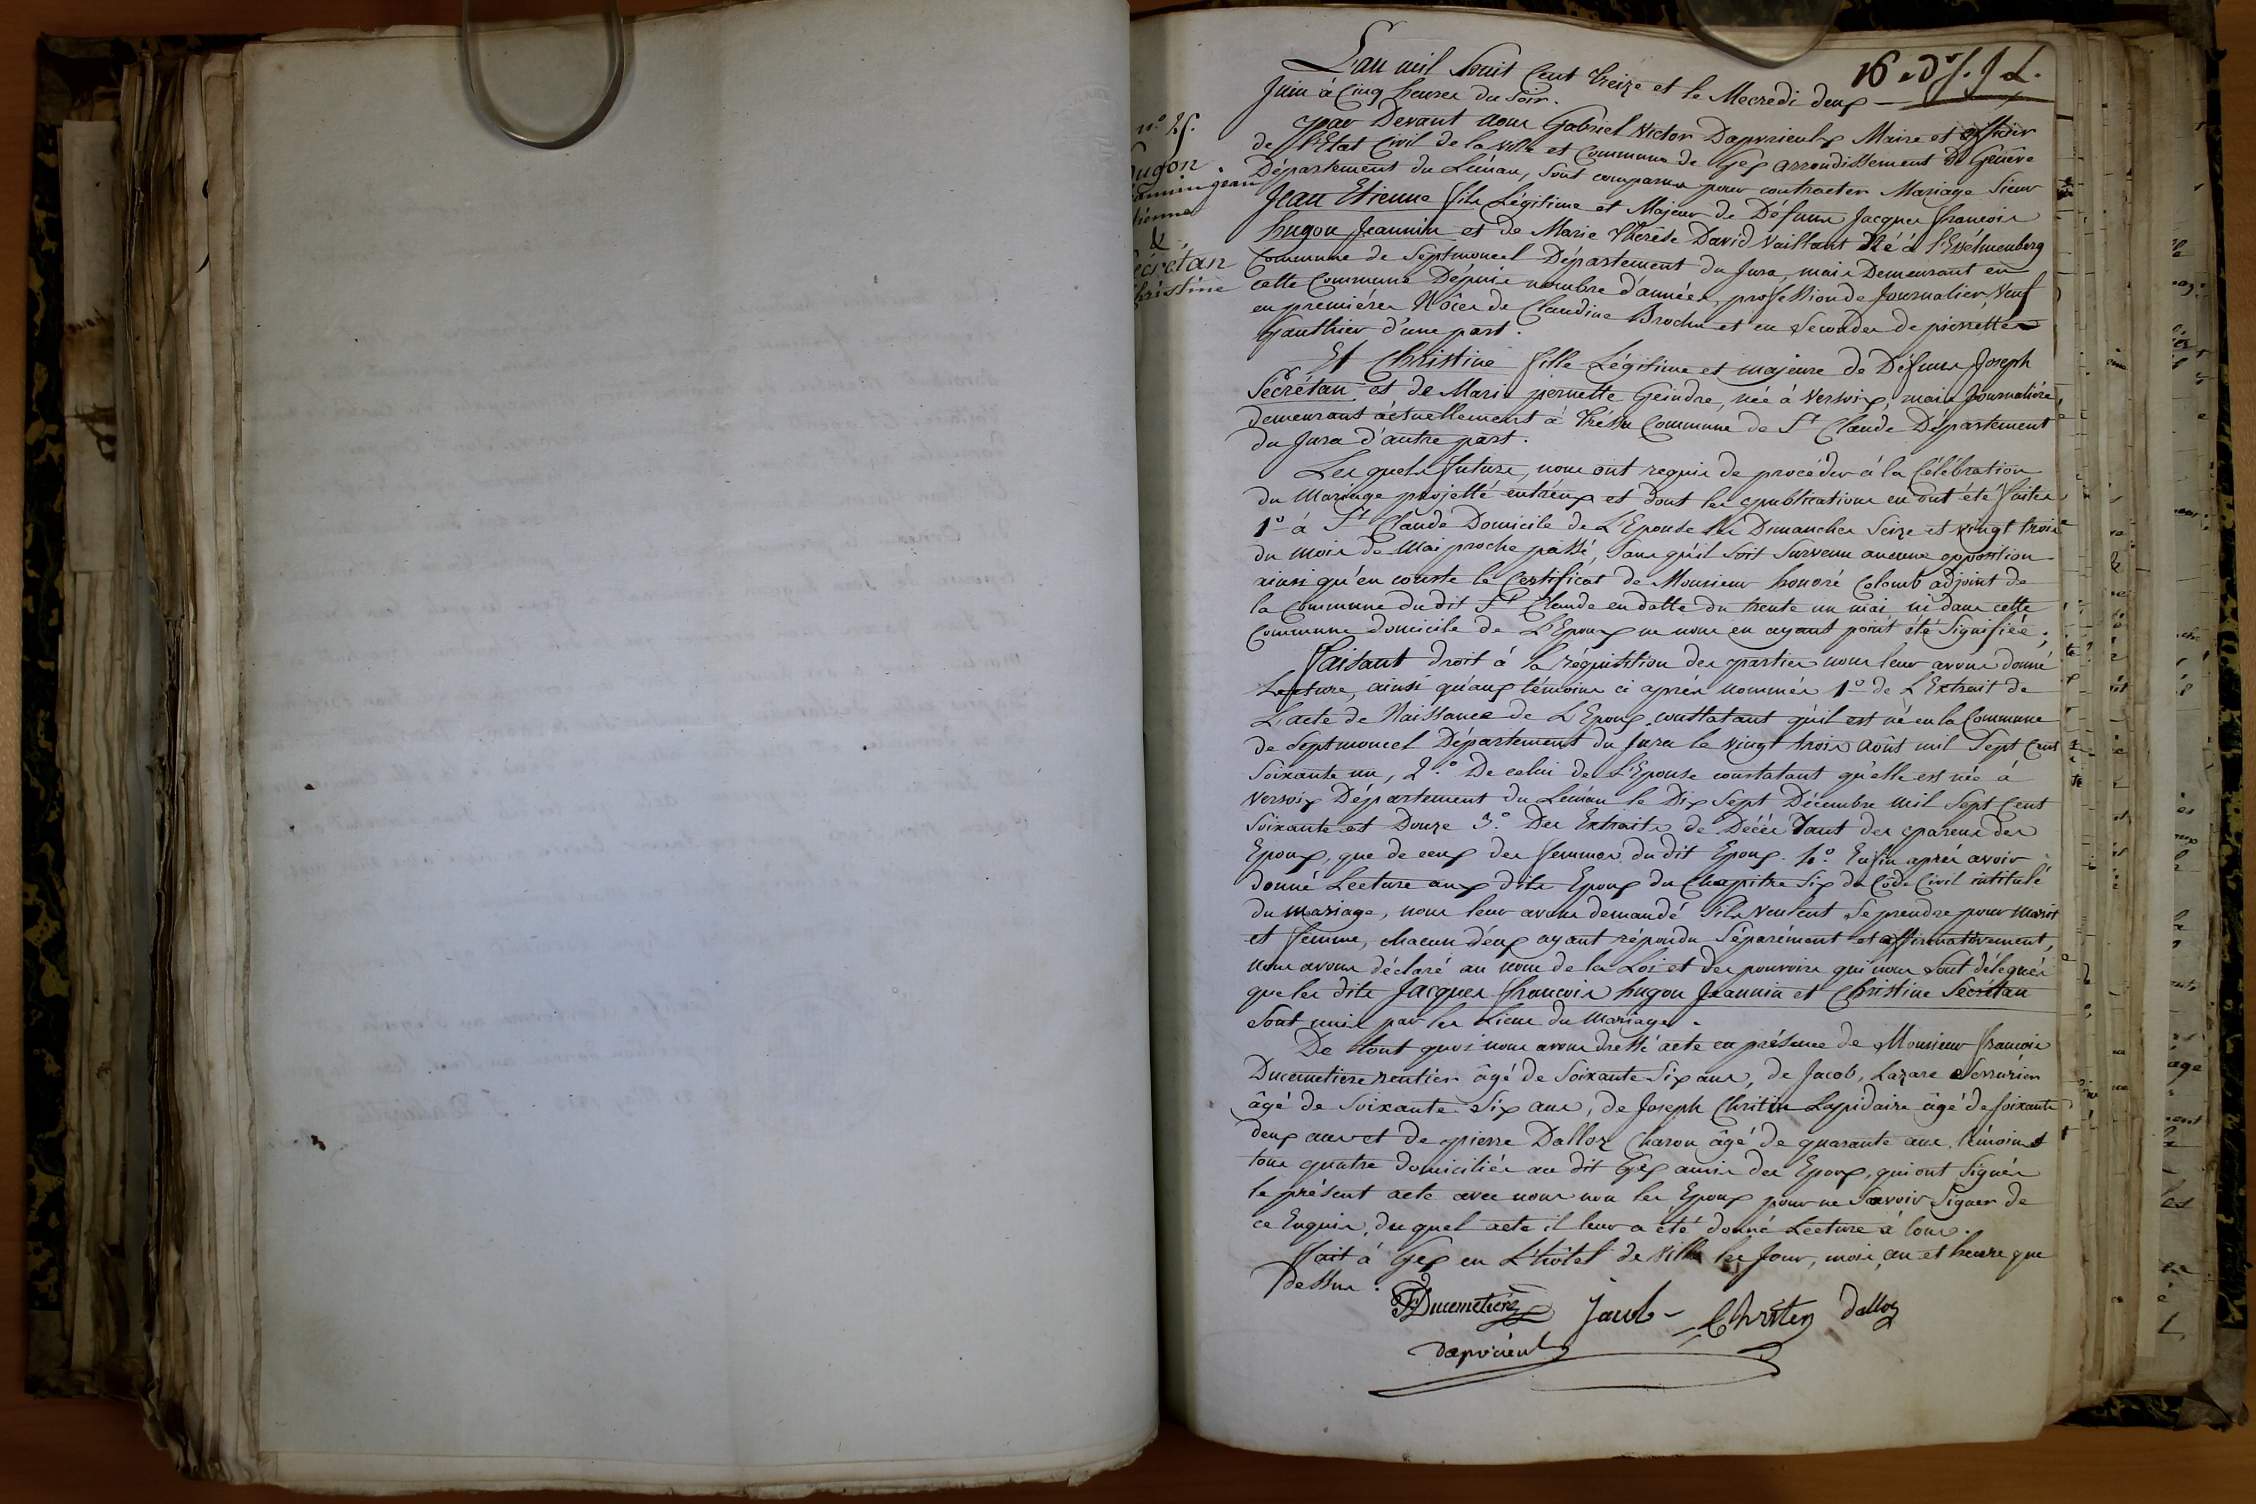 16e d f. J L.
L'an mil huit Cent treize et le Mecredi deux
Juin à Cinq heures du Soir.
n.° 25.
hugon
Jeannin jean
étienne
&
Secrétan
christine
par Devant nous Gabriel Victor Dapvrieulx Maire et officier
de l'Etat Civil de la ville et Commune de Gex arrondissement de Genève
Département du Léman, sont comparus pour contracter Mariage Sieur
Jean Etienne fils Légitime et Majeur de Défunts Jacques françois
hugon Jeannin et de Marie Thérèse David Vaillant Né à
Commune de Septmoncel Département du Jura, mais Demeurant en
cette Commune Dépuis nombre d'années, profession de Journalier, Veuf
en premières Nôces de Claudine Brochu et en secondes de pierrette
Gauthier d'une part.
Et Christine fille Légitime et majeure de Défunts Joseph
Secrétan et de Marie pernette Geindre, née à Versoix, mais Journalière,
demeurant actuellement à Commune de St Claude Département
du Jura d'autre part.
Les quels futurs, nous ont requis de procéder à la Célébration
du Mariage projetté entr'eux et dont les publications en ont été faites
1° à St Claude Domicile de L'Epouse les Dimanches Seize et vingt trois
du mois de Mai proche passé, sans qu'il soit Survenu aucune opposition
ainsi qu'en conste le Certificat de Monsieur honoré Colomb adjoint de
la Commune du dit St Claude en datte du trente un mai ni dans cette
Commune domicile de L'Epoux ne nous en ayant point été Signifiée;
faisant droit à la réquisition des parties nous leur avons donné
Lecture, ainsi qu'aux témoins ci après nommés 1° de L'Extrait de
L'acte de Naissance de L'Epoux constatant qu'il est né en la Commune
de Septmoncel Département du Jura le vingt trois août mil Sept Cent
Soixante un, 2.° De celui de L'Epouse constatant qu'elle est née à
Versoix Département du Léman le Dix Sept Décembre mil Sept Cent
Soixante et Douze 3.° Des Extraits de Décès tant des parens des
Epoux, que de ceux des femmes du dit Epoux. 4.° Enfin après avoir
donné Lecture aux dits Epoux du Chapitre Six du Code Civil intitulé
du mariage, nous leur avons demandé s'ils veulent se prendre pour mari
et femme, chacun d'eux ayant répondu séparément et affirmativement,
nous avons déclaré au nom de la Loi et des pouvoirs qui nous sont délégués
que les dits Jacques françois hugon Jeannin et Christine Secrétan
sont unis par les Liens du Mariage.
De tout quoi nous avons dressé acte en présence de Monsieur françois
Ducemetiere rentier âgé de Soixante Six ans, de Jacob, Lazare Serrurier
âgé de Soixante Six ans, de Joseph Christin Lapidaire âgé de soixante
deux ans et de pierre Dalloz Charon âgé de quarante ans, témoins
tous quatre domiciliés au dit Gex amis des Epoux, qui ont Signés
le présent acte avec nous non les Epoux pour ne Savoir Signer de
ce Enquis, du quel acte il leur a été donné Lecture à tous.
fait à Gex en L'hôtel de Ville les Jour, mois, an et heure que
dessus.
Ducemetiere Jacob Christin Dalloz
Dapvrieulx